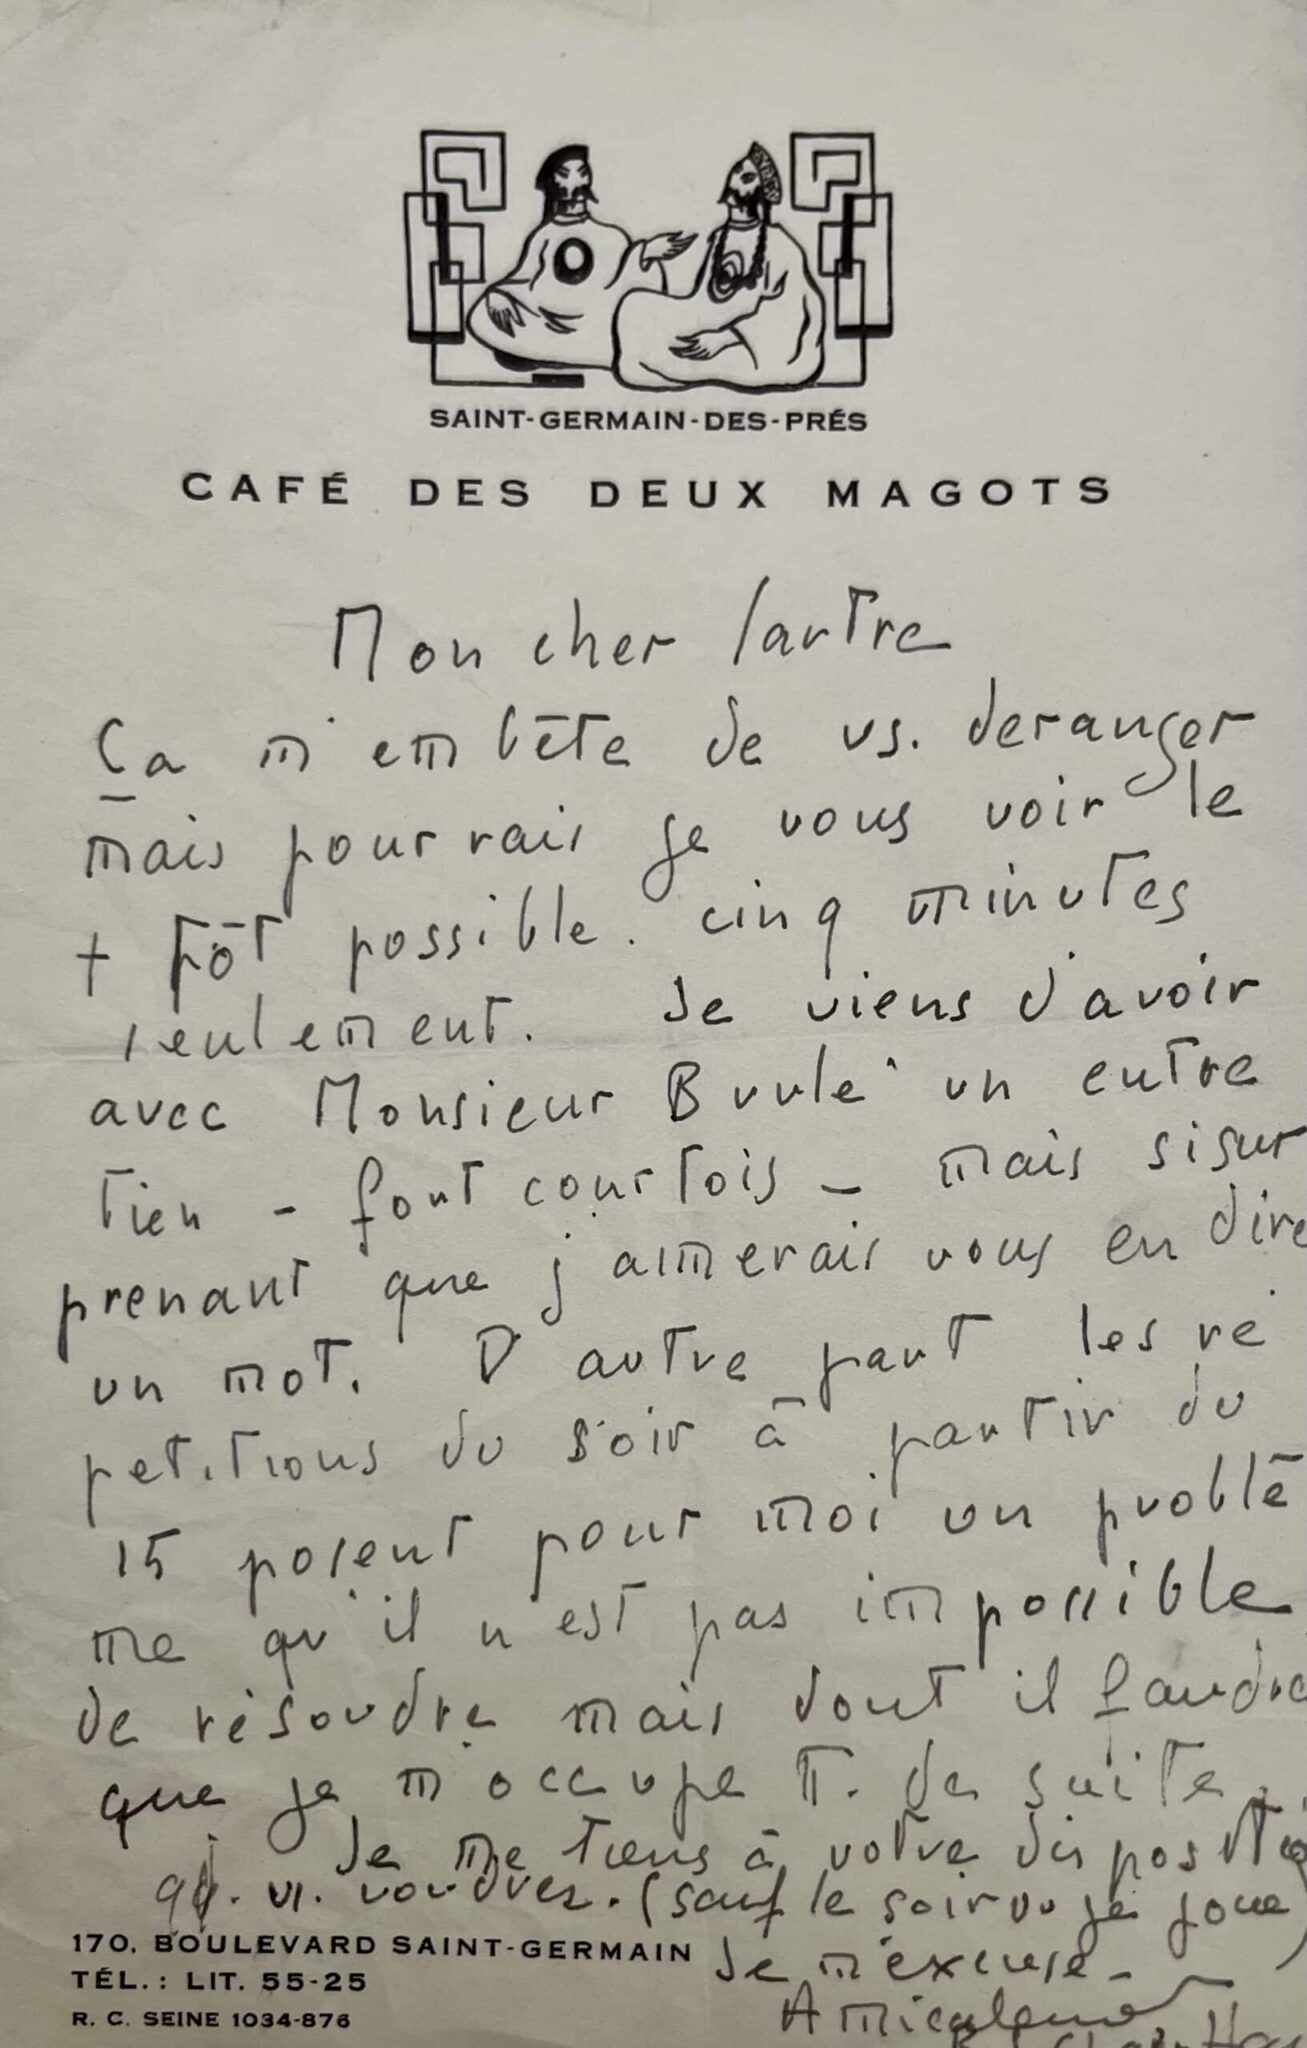 SAINT-GERMAIN-DES-PRÉS
CAFÉ DES DEUX MAGOTS
Mon cher Sartre
Ça m'embête de vs. deranger
mais pourrais je vous voir le
+ tôt possible. cinq minutes
seulement. Je viens d'avoir
avec Monsieur Brulé un entre
tien - fort courtois - mais si sur
prenant que j'aimerais vous en dire
un mot. D'autre part les ré
petitions du soir à partir du
15 posent pour moi un problè
me qu'il n'est pas impossible
de résoudre mais dont il faudra
que je m'occupe tt. de suite.
Je me tiens à votre dispositio
qd. vs. voudrez. (sauf le soir où je joue)
Je m'excuse -
Amicalement
170, BOULEVARD SAINT-GERMAIN
TÉL. : LIT. 55-25
R. C. SEINE 1034-876